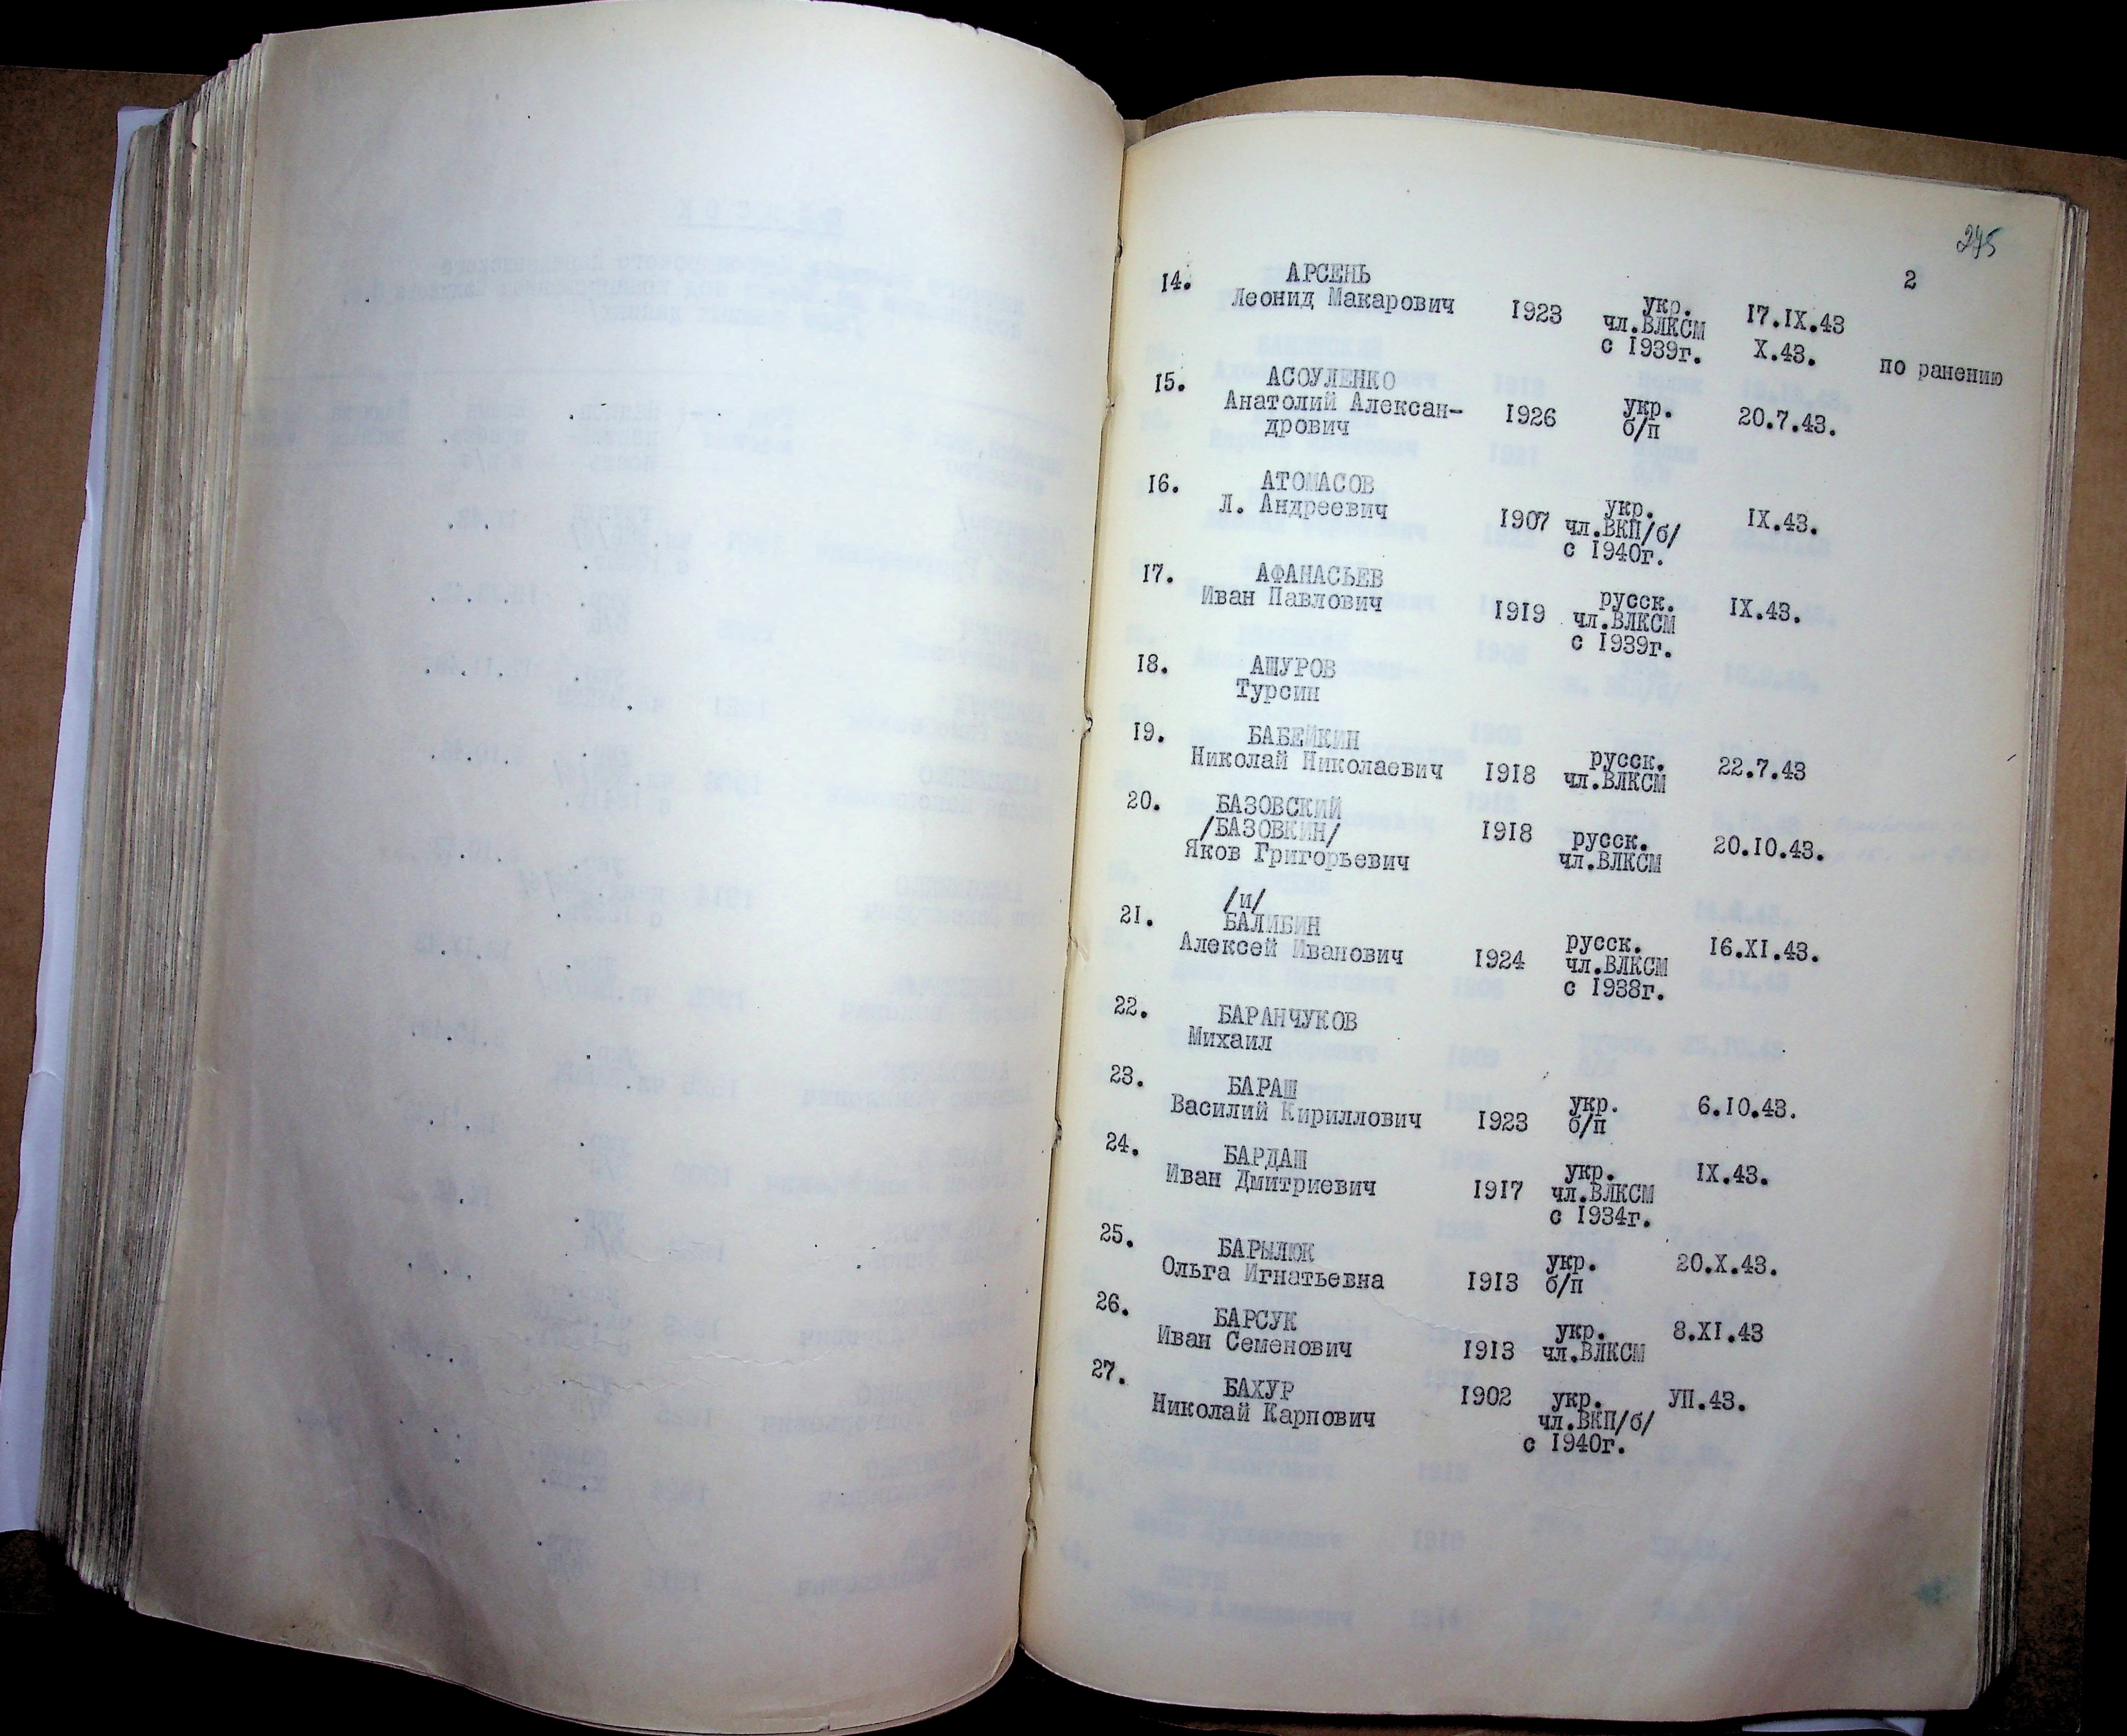 275
2
14. АРСЕНЬ
Леонид Макарович 1923 укр. 17.IX.43
чл.ВЛКСМ
с 1939г. X.43. по ранению
15. АСОУЛЕНКО
Анатолий Алексан- 1926 укр. 20.7.43.
дрович б/п
16. АТОМАСОВ
Л. Андреевич 1907 укр. IX.43.
чл.ВКП/б/
с 1940г.
17. АФАНАСЬЕВ
Иван Павлович 1919 русск. IX.43.
чл.ВЛКСМ
с 1939г.
18. АШУРОВ
Турсин
19. БАБЕЙКИН
Николай Николаевич 1918 русск. 22.7.43
чл.ВЛКСМ
20. БАЗОВСКИЙ
/БАЗОВКИН/ 1918 русск. 20.10.43.
Яков Григорьевич чл.ВЛКСМ
/и/
21. БАЛИБИН
Алексей Иванович 1924 русск. 16.XI.43.
чл.ВЛКСМ
с 1938г.
22. БАРАНЧУКОВ
Михаил
23. БАРАШ
Василий Кириллович 1923 укр. 6.10.43.
б/п
24. БАРДАШ
Иван Дмитриевич 1917 укр. IX.43.
чл.ВЛКСМ
с 1934г.
25. БАРЫЛЮК
Ольга Игнатьевна 1913 укр. 20.X.43.
б/п
26. БАРСУК
Иван Семенович 1913 укр. 8.XI.43
чл.ВЛКСМ
27. БАХУР 1902 укр. УП.43.
Николай Карпович чл.ВКП/б/
с 1940г.